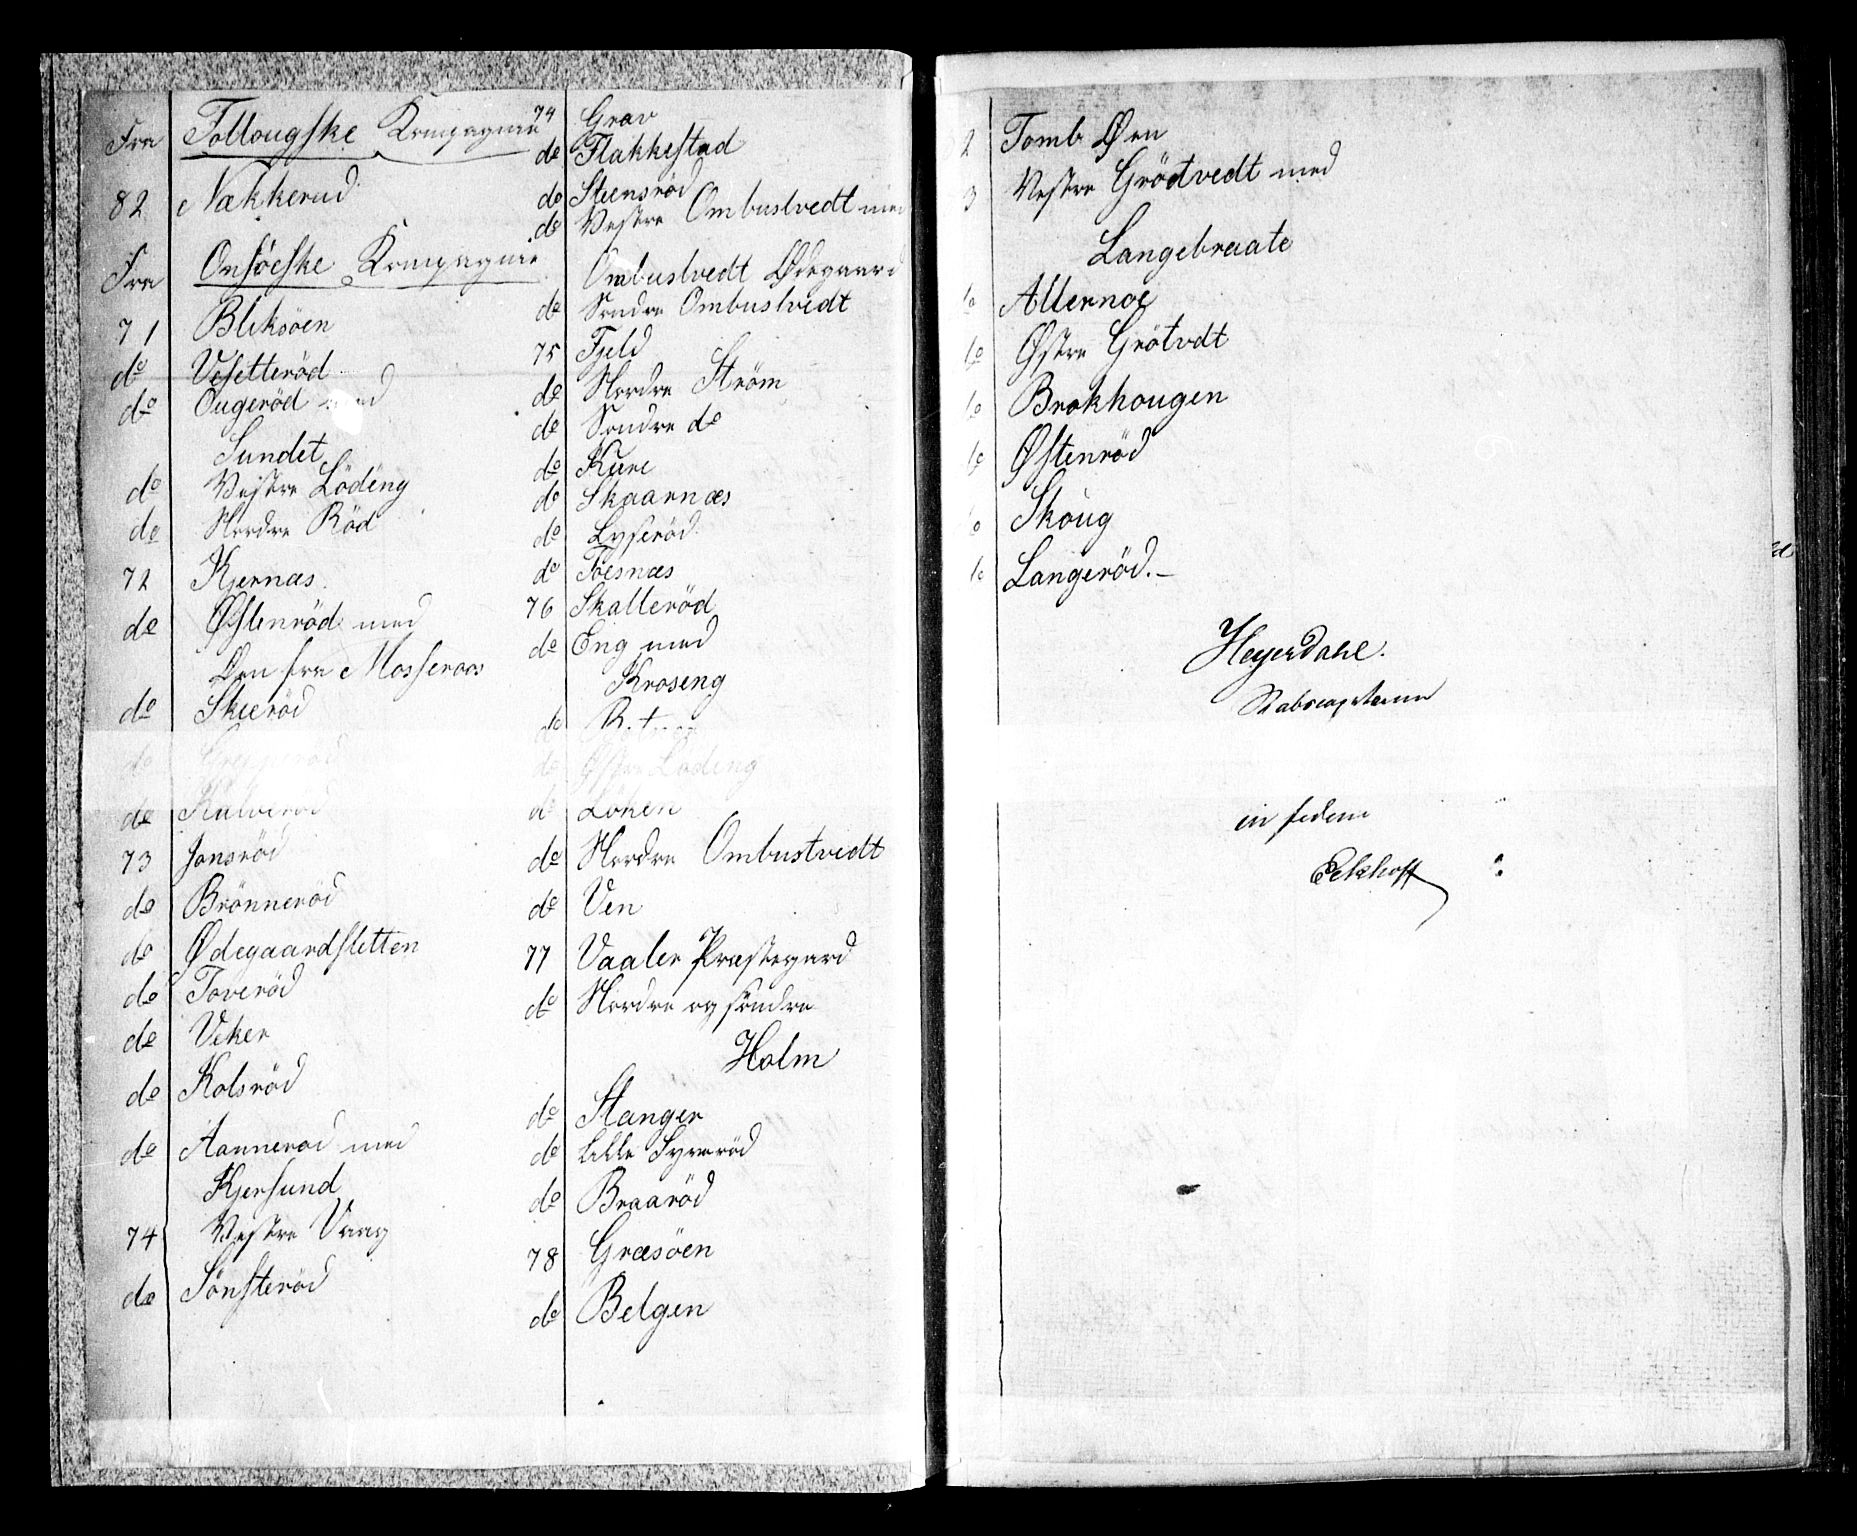 Fra Follougske Kompagnie
82 Nækkerud
Fra Onsöeske Kompagnie
71 Bliksöen
do Vesetteröd
do Ougeröd med
Sundet
do Vestre Löding
do Nordre Röd
72 Kjernæs
do Østenröd med
Øen fra Mosseroos
do Skieröd
do
do Kalveröd
73 Jonsröd
do Brönneröd
do Ødegaardsletten
do Toveröd
do Veker
do Kolsröd
do Aanneröd med
Kjersund
74 Vestre Vaag
do Sönsteröd
74 Grav
do Flakkestad
do Steensröd
do Vestre Ombustvedt med
Ombustvedt Ødegaard
do Søndre Ombustvedt
75 Fjeld
do Nordre Ström
do Søndre do
do Kure
do Skaarnæs
do Lyseröd
do Toesnæs
76 Skalleröd
do Eng med
Kroseng
do
do Østre Löding
do Löken
do Nordre Ombustvedt
do Ven
77 Vaaler Præstegard
do Nordre og söndre
Holm
do Stanger
do Lille Syveröd
do Braaröd
78 Græsöen
do Belgen
2 Tomb Øen
3 Vestre Grödtvedt med
Langebraate
do Allernoe
do Østre Grötvdt
do Brokhougen
do Østenröd
do Skoug
do Langeröd.-
Heyerdahl.
Stabscapitaine
in fidem
Eckhoff